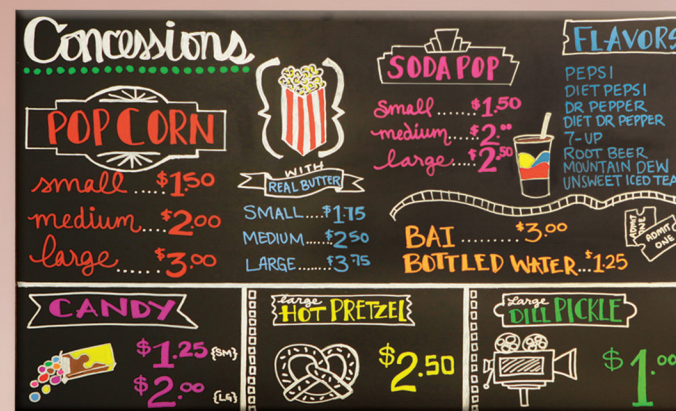 Concessions
POPCORN
small.....$1.50
medium....$2.00
large......$3.00
WITH
REAL BUTTER
SMALL....$1.75
MEDIUM......$2.50
LARGE........$3.75
SODA POP
small......$1.50
medium....$2.00
large....$2.50
FLAVORS
PEPSI
DIET PEPSI
DR PEPPER
DIET DR PEPPER
7-UP
ROOT BEER
MOUNTAIN DEW
UNSWEET ICED TEA
BAI.........$3.00
BOTTLED WATER...$1.25
ADMIT ONE
ADMIT ONE
CANDY
$1.25 {SM}
$2.00 {LG}
large
HOT PRETZEL
$2.50
Large
DILL PICKLE
$1.00